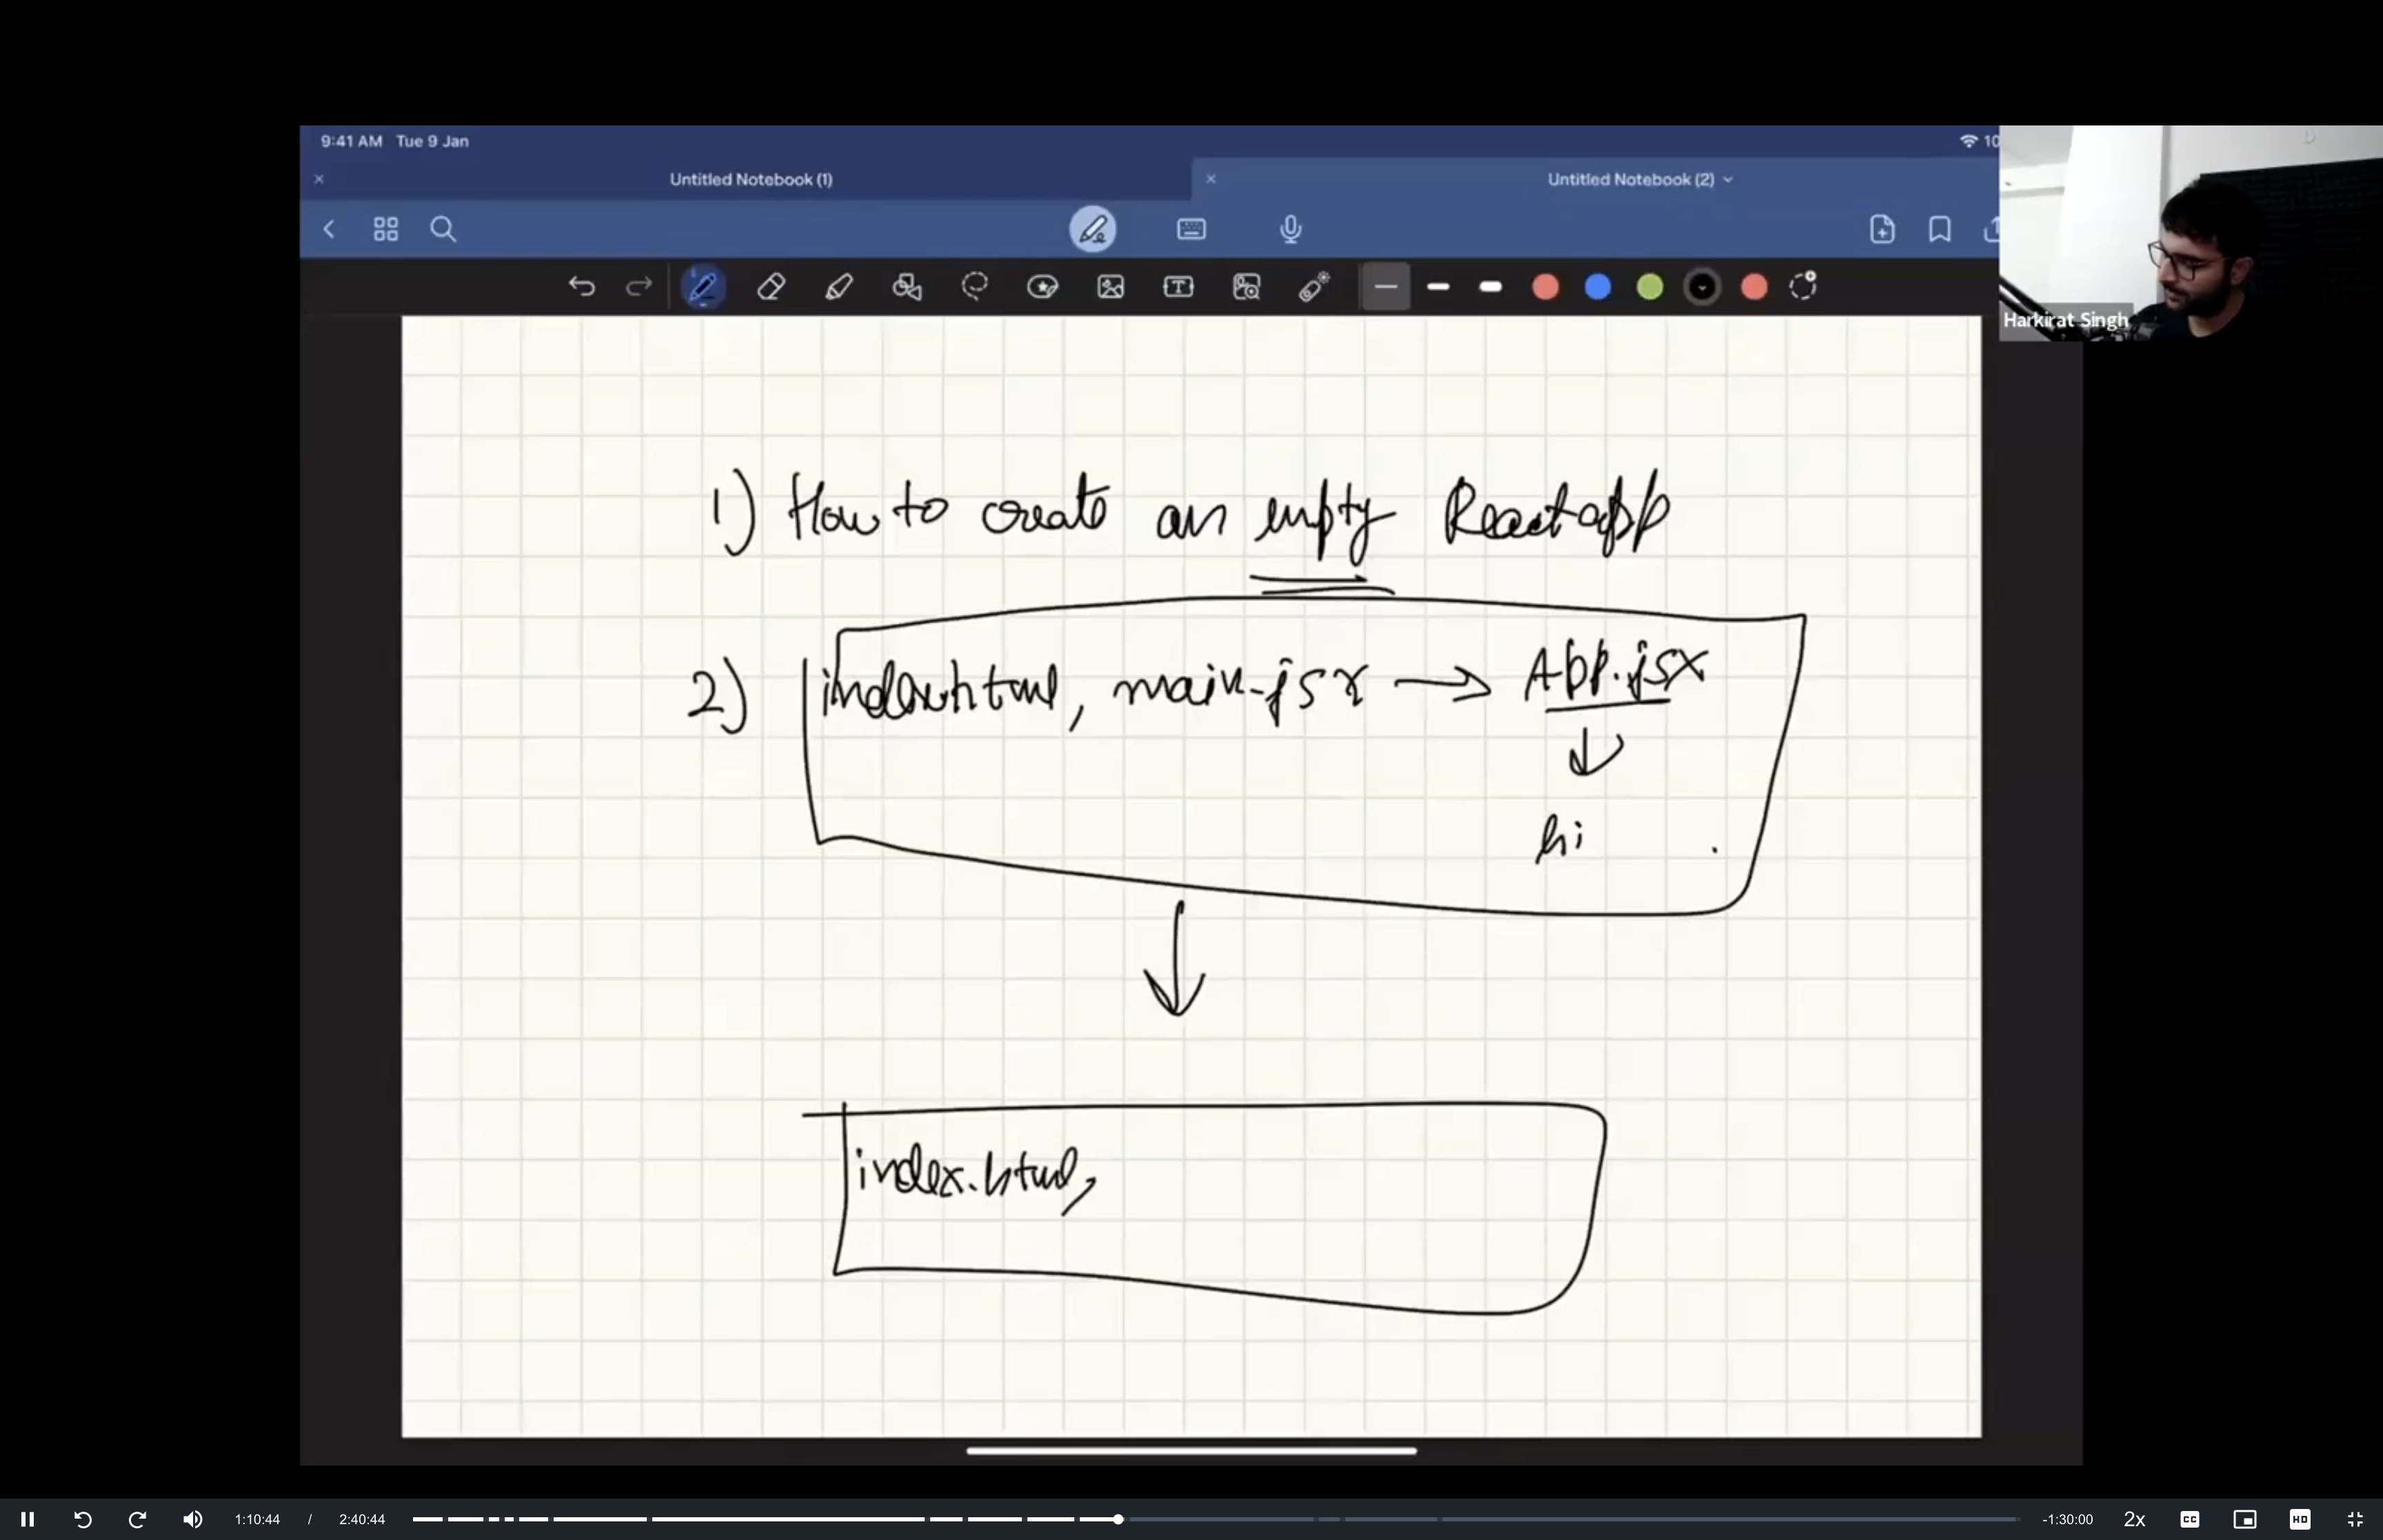 9:41 AM Tue 9 Jan
10
Untitled Notebook (1)
Untitled Notebook (2)
Harkirat Singh
1) How to create an empty React app
2) index.html, main.jsx → App.jsx
↓
hi
↓
index.html,
1:10:44 / 2:40:44
-1:30:00
2x
CC
HD